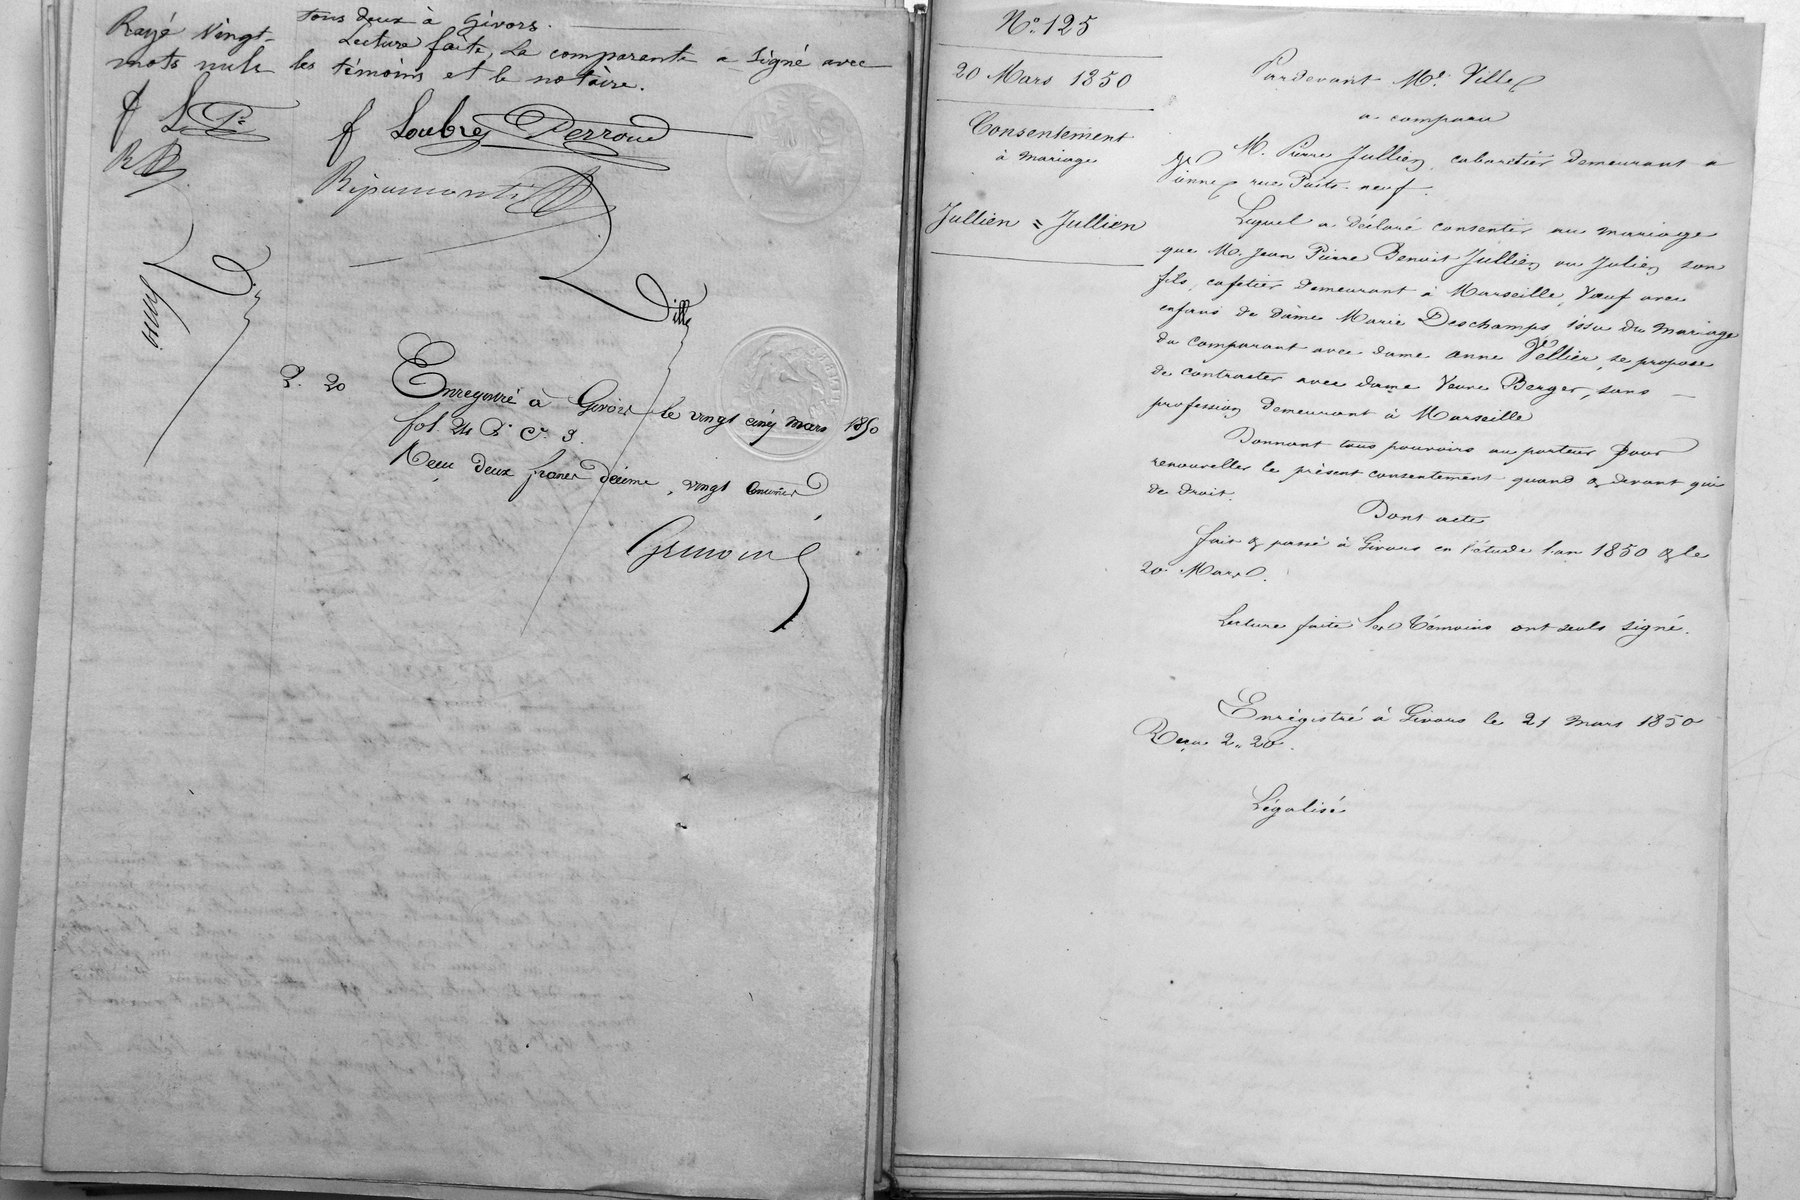 tous deux à Givors.
Lecture faite, la comparante a signé avec
les témoins et le notaire.
Rayé vingt-
mots nuls
f Loubrey Perroud
Ripamonti
Ville
2. 20
Enregistré à Givors le vingt cinq mars 1850
fol. 24 Rº Cº 3.
Reçu deux francs décime, vingt centimes
Nº 125
20 Mars 1850
Consentement
à mariage
Jullien = Jullien
Pardevant Me. Ville
a comparu
M. Pierre Jullien, cabaretier demeurant à
Vienne, rue Puits-neuf.
Lequel a déclaré consentir au mariage
que M. Jean Pierre Benoit Jullien ou Julien son
fils, cafetier demeurant à Marseille, Veuf avec
enfans de dame Marie Deschamps, issu du mariage
du comparant avec dame anne Vellier, se propose
de contracter avec dame Veuve Berger, sans
profession demeurant à Marseille
Donnant tous pouvoirs au porteur pour
renouveller le présent consentement quand & devant qui
de droit.
Dont acte
fait & passé à Givors en l'étude l'an 1850 & le
20 Mars.
Lecture faite les témoins ont seuls signé.
Enrégistré à Givors le 21 mars 1850
Reçu 2„20.
Légalisé